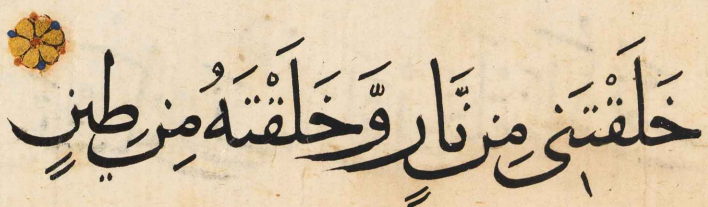 خَلَقْتَنِى مِن نَّارٍ وَّخَلَقْتَهُ مِن طِينٍ